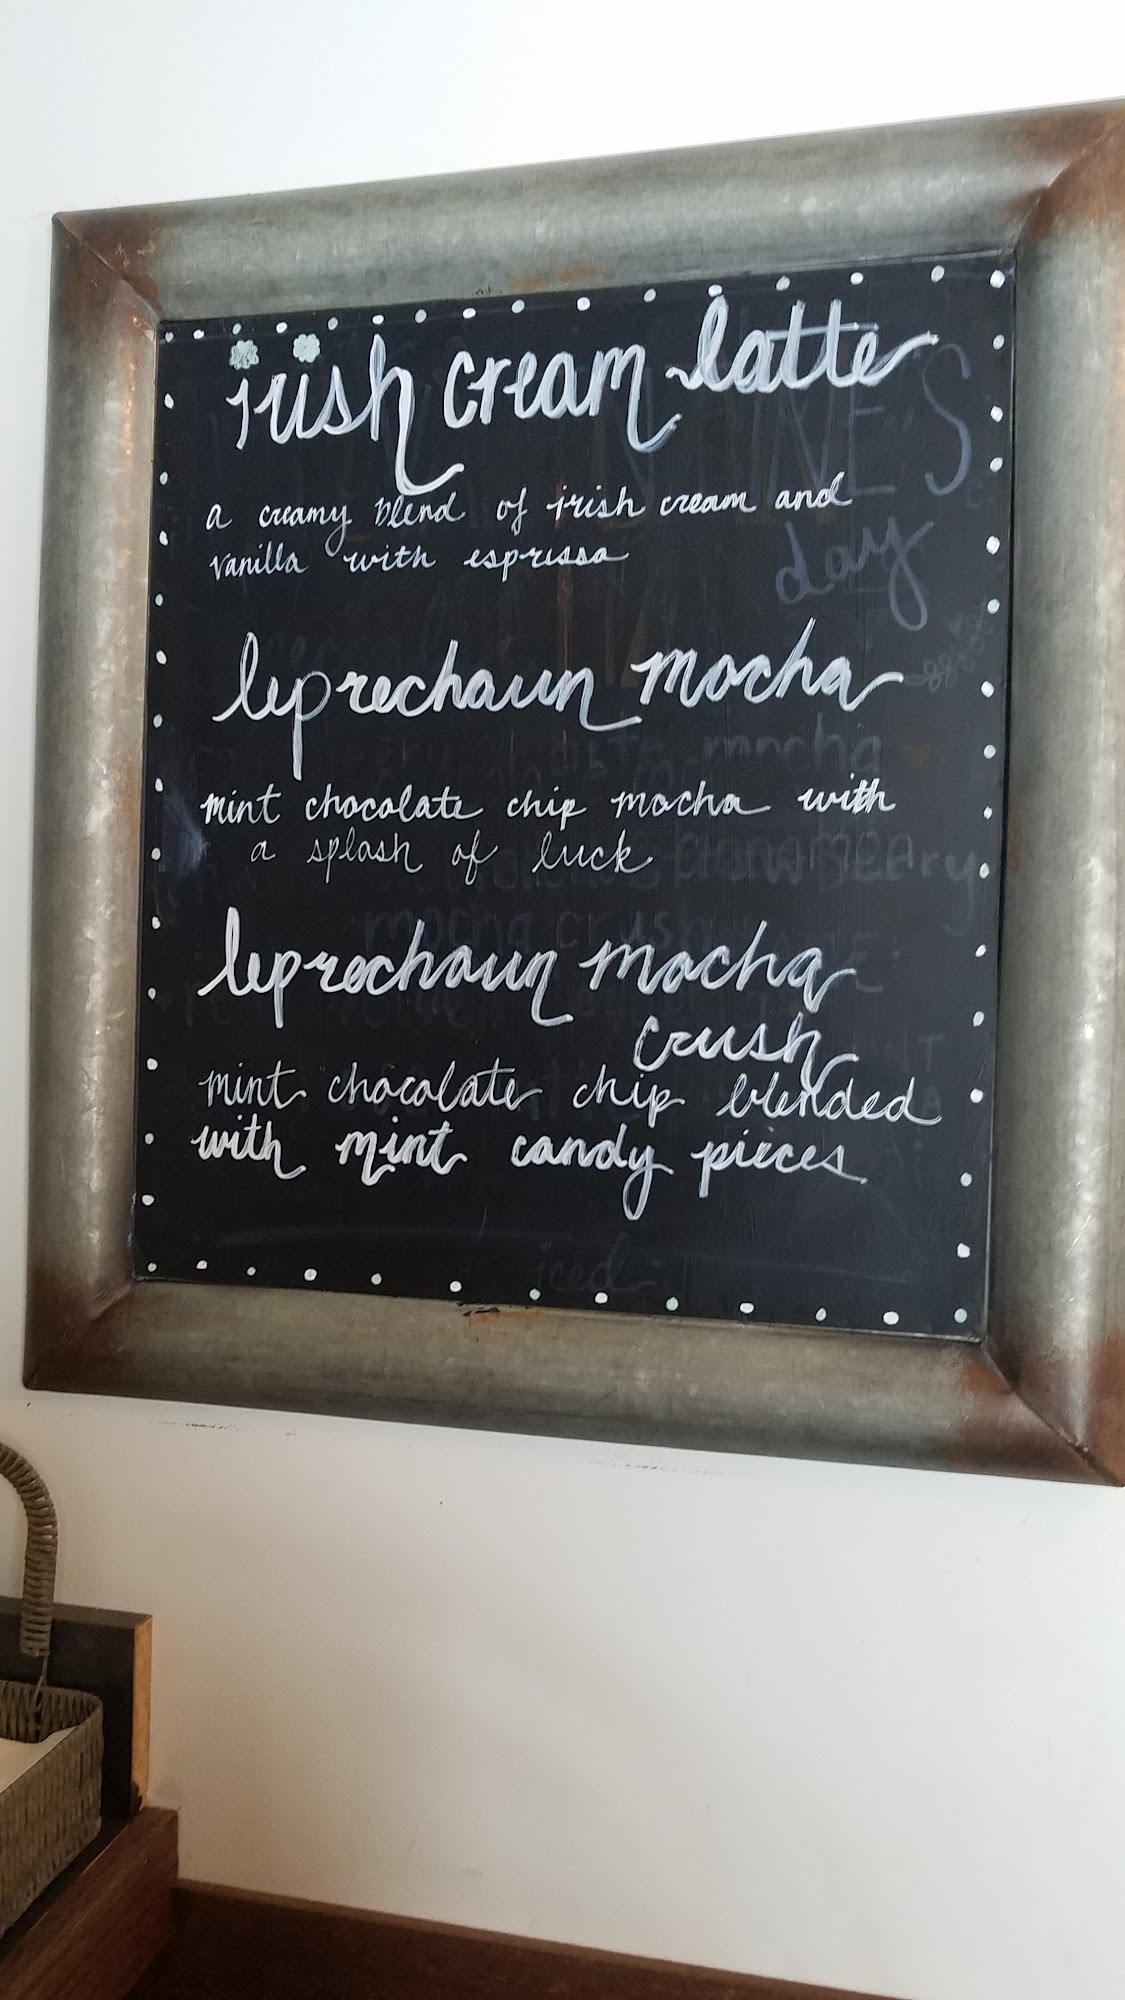 irish cream latte
a creamy blend of irish cream and
vanilla with espresso
leprechaun mocha
mint chocolate chip mocha with
a splash of luck
leprechaun mocha
crush
mint chocolate chip blended
with mint candy pieces
day
mocha
mocha crush
iced